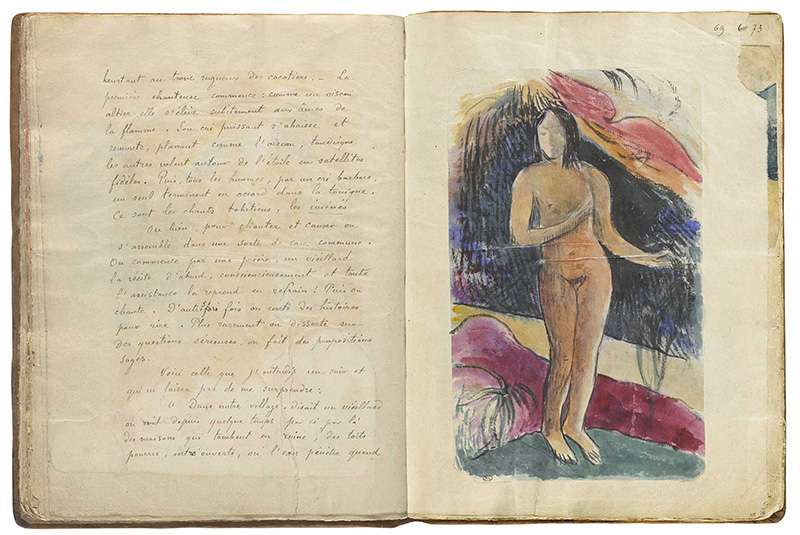 heurtant au tronc rugueux des cocotiers. — La
première chanteuse commence : comme un oiseau
altier elle s'élève subitement aux cîmes de
la flamme. Son cri puissant s'abaisse et
remonte, planant comme l'oiseau, tandis que
les autres volent autour de l'étoile en satellites
fidèles. Puis, tous les hommes, par un cri barbare,
un seul terminent en accord dans la tonique.
Ce sont les chants tahitiens, les iménés
Ou bien, pour chanter et causer on
s'assemble dans une sorte de case commune.
On commence par une prière, un vieillard
la récite d'abord, consciencieusement et toute
l'assistance la reprend en refrain ! Puis on
chante. D'autres fois on conte des histoires
pour rire. Plus rarement on disserte sur
des questions sérieuses, on fait des propositions
sages.
Voici celle que j'entendis un soir et
qui ne laissa pas de me surprendre :
« Dans notre village, disait un vieillard
on voit depuis quelque temps par ci par là
des maisons qui tombent en ruine, des toits
pourris, entr'ouverts, où l'eau pénètre quand
69 73